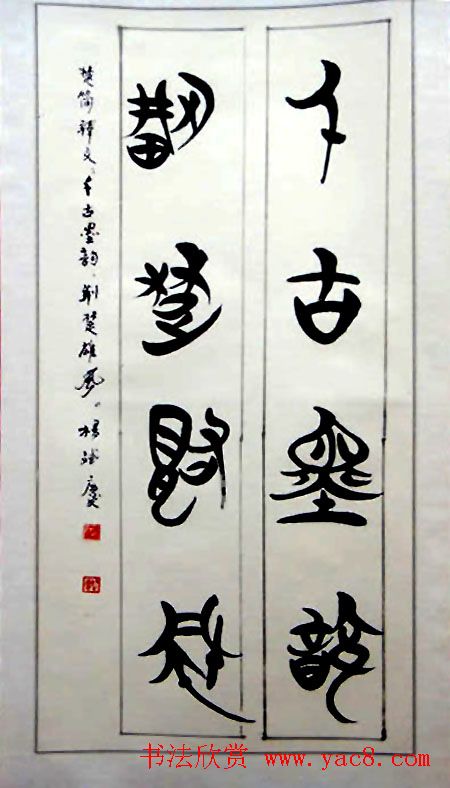 千古墨韵
荆楚雄风
楚简释文。千古墨韵，荆楚雄风。杨斌庆
书法欣赏 www.yac8.com